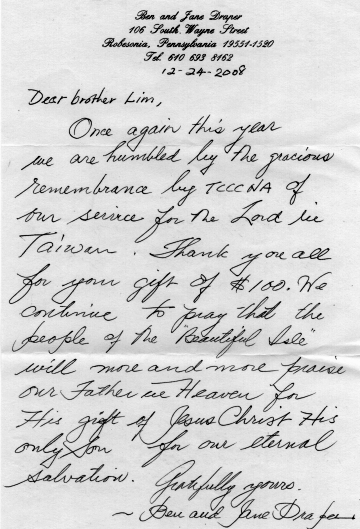 Ben and Jane Draper
106 South Wayne Street
Robesonia, Pennsylvania 19551-1520
Tel. 610 693 8162
12-24-2008
Dear brother Lim,
Once again this year
we are humbled by the gracious
remembrance by TCCCNA of
our service for the Lord in
Taiwan. Thank you all
for your gift of $100. We
continue to pray that the
people of the "Beautiful Isle"
will more and more praise
our Father in Heaven for
His gift of Jesus Christ His
only Son for our eternal
salvation. Gratefully yours.
~ Ben and Jane Draper